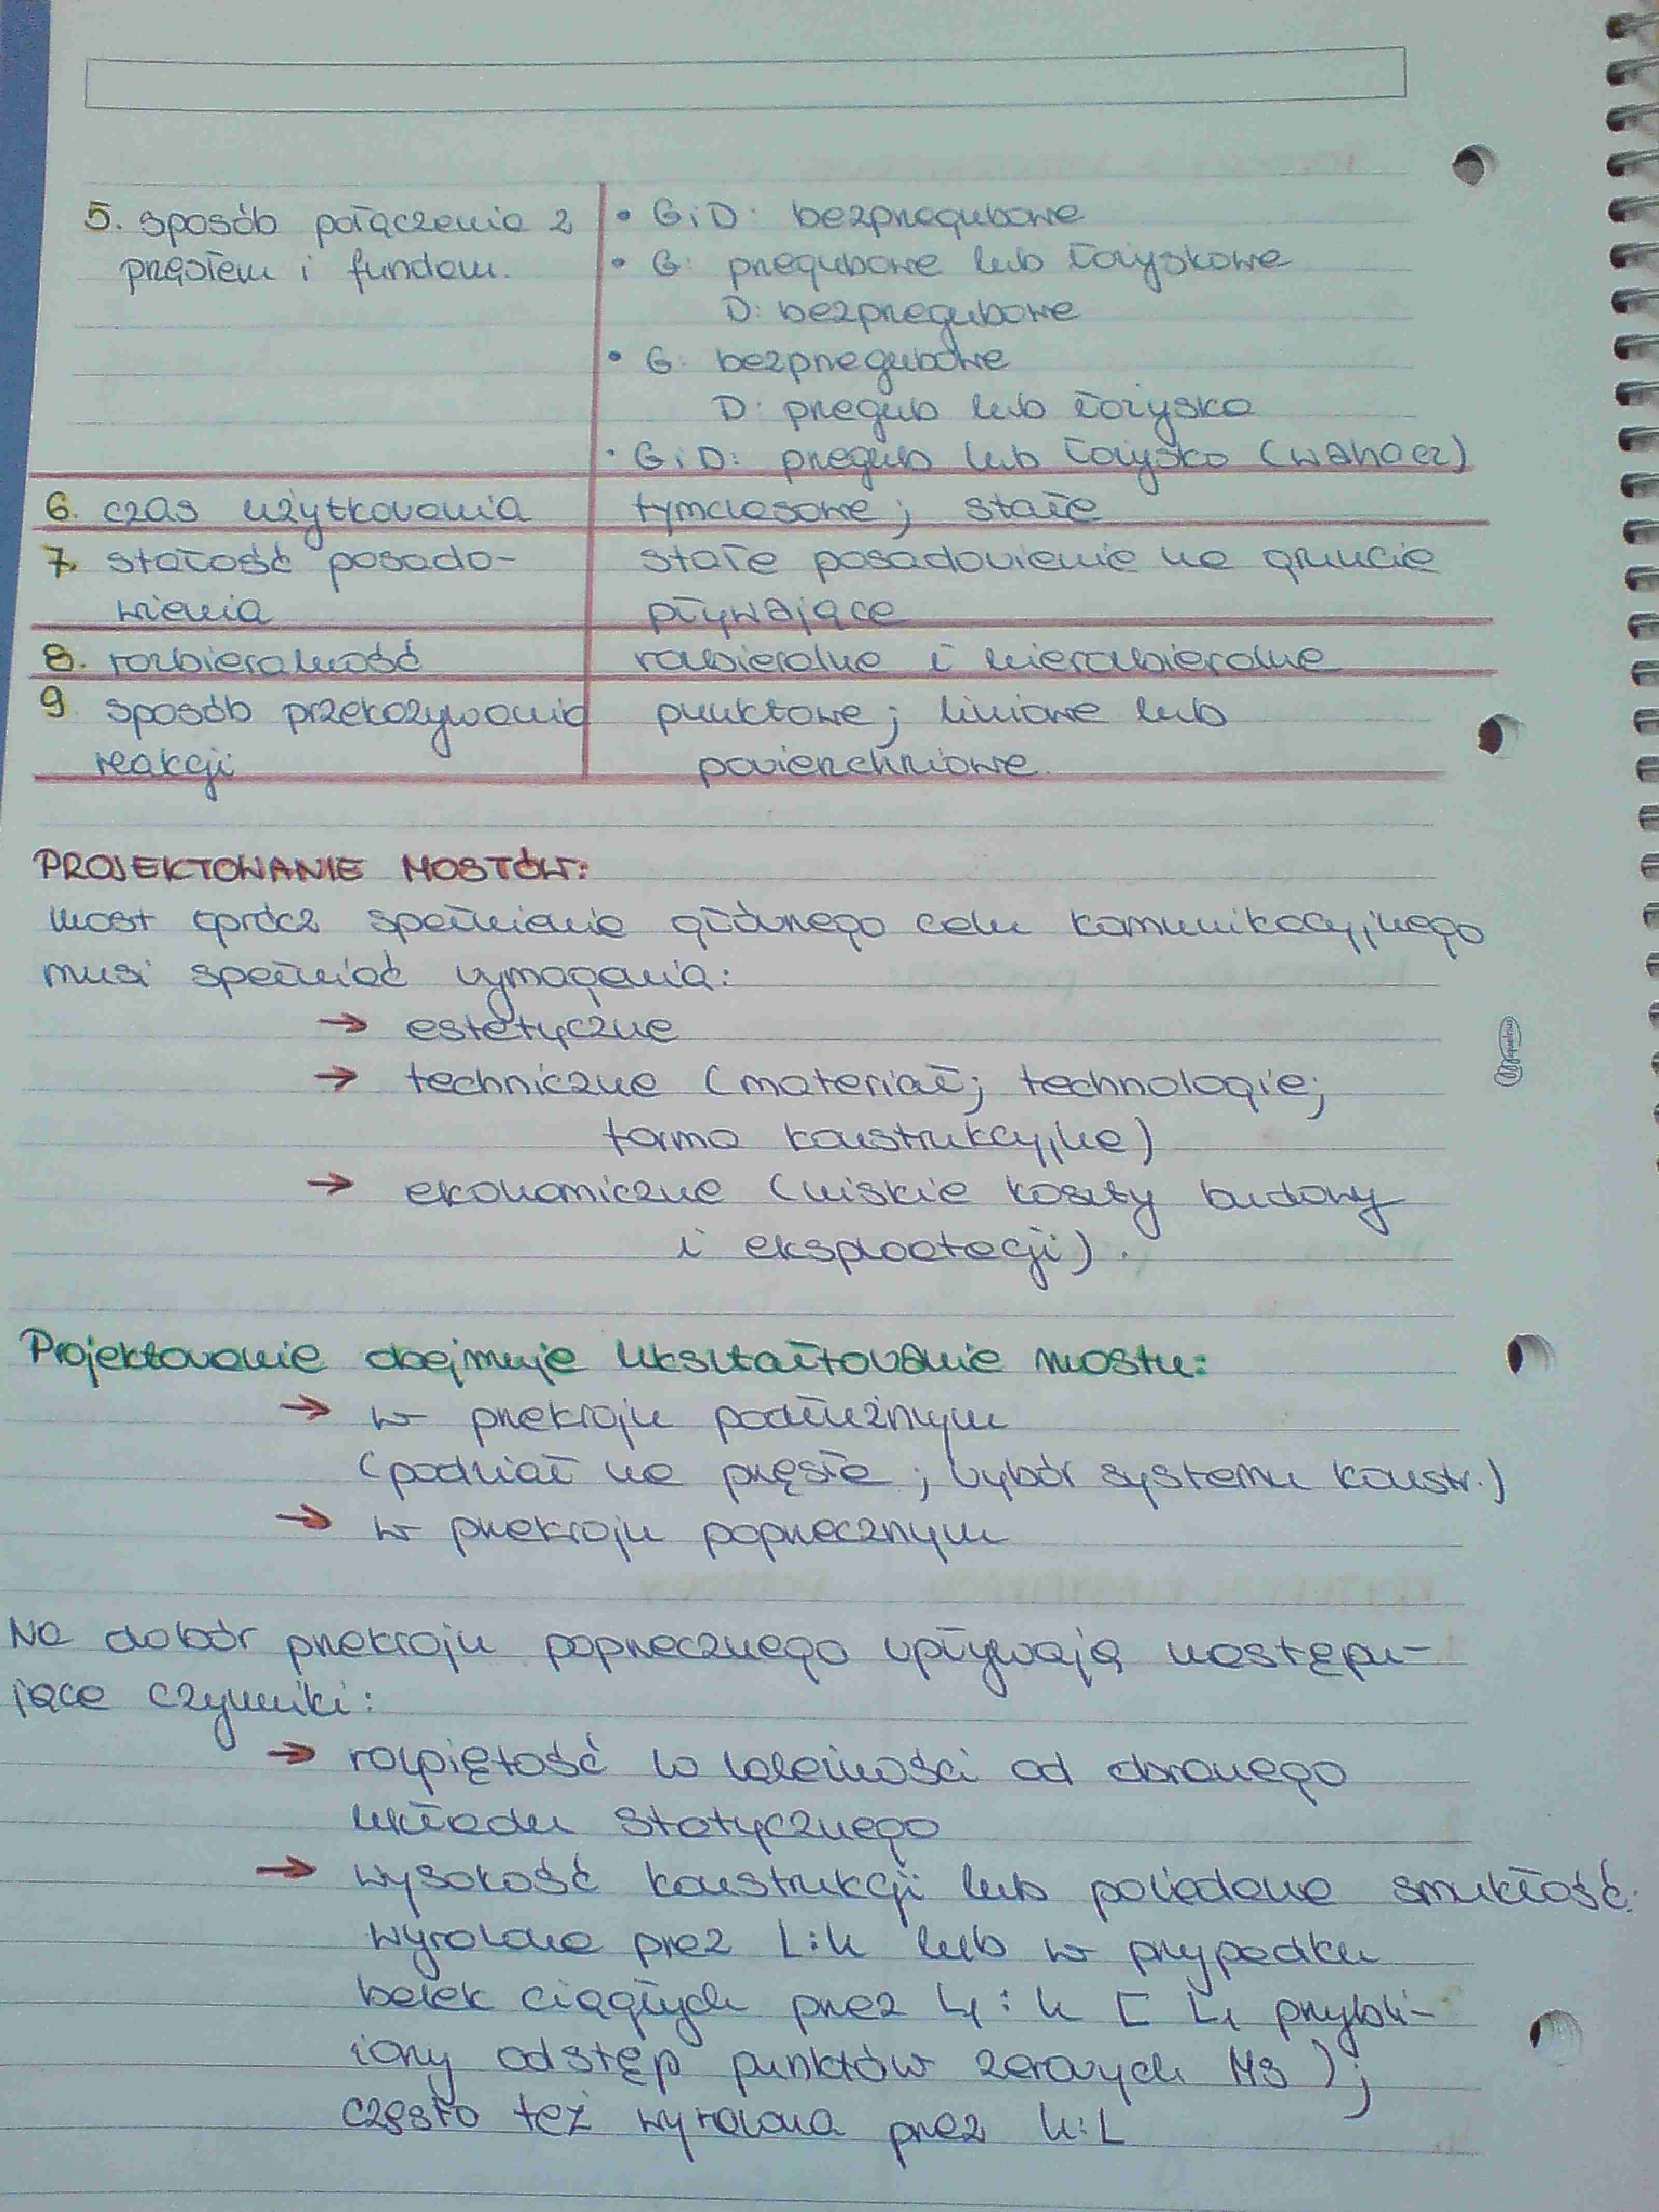 5. sposób połączenia z
przęsłem i fundam.
• G i D: bezprzegubowe
• G: przegubowe lub łożyskowe
D: bezprzegubowe
• G: bezprzegubowe
D: przegub lub łożysko
• G i D: przegub lub łożysko (wahacz)
6. czas użytkowania
tymczasowe; stałe
7. stałość posado-
wienia
stałe posadowienie na gruncie
pływające
8. rozbieralność
rozbieralne i nierozbieralne
9 sposób przekazywania
reakcji
punktowe; liniowe lub
powierzchniowe
PROJEKTOWANIE MOSTÓW:
most oprócz spełniania głównego celu komunikacyjnego
musi spełniać wymagania:
→ estetyczne
→ techniczne (materiał; technologie;
forma konstrukcyjne)
→ ekonomiczne (niskie koszty budowy
i eksploatacji).
Projektowanie obejmuje ukształtowanie mostu:
→ w przekroju podłużnym
(podział na przęsła; wybór systemu konstr.)
→ w przekroju poprzecznym
Na dobór przekroju poprzecznego wpływają następu-
jące czynniki:
→ rozpiętość w zależności od obranego
układu statycznego
→ wysokość konstrukcji lub pożądana smukłość
wyrażone przez L:h lub w przypadku
belek ciągłych przez L₁:h [L₁ przybli-
żony odstęp punktów zerowych Mg);
często też wyrażona przez h:L